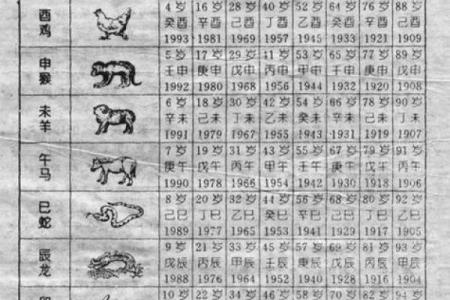 酉 4岁 16岁 28岁 40岁 52岁 64岁 76岁 88岁
鸡 癸酉 辛酉 己酉 丁酉 乙酉 癸酉 辛酉 己酉
1993 1981 1969 1957 1945 1933 1921 1909
申 5岁 17岁 29岁 41岁 53岁 65岁 77岁 89岁
猴 壬申 庚申 戊申 丙申 甲申 壬申 庚申 戊申
1992 1980 1968 1956 1944 1932 1920 1908
未 6岁 18岁 30岁 42岁 54岁 66岁 78岁 90岁
羊 辛未 己未 丁未 乙未 癸未 辛未 己未 丁未
1991 1979 1967 1955 1943 1931 1919 1907
午 7岁 19岁 31岁 43岁 55岁 67岁 79岁 91岁
马 庚午 戊午 丙午 甲午 壬午 庚午 戊午 丙午
1990 1978 1966 1954 1942 1930 1918 1906
巳 8岁 20岁 32岁 44岁 56岁 68岁 80岁 92岁
蛇 己巳 丁巳 乙巳 癸巳 辛巳 己巳 丁巳 乙巳
1989 1977 1965 1953 1941 1929 1917 1905
辰 9岁 21岁 33岁 45岁 57岁 69岁 81岁 93岁
龙 戊辰 丙辰 甲辰 壬辰 庚辰 戊辰 丙辰 甲辰
1988 1976 1964 1952 1940 1928 1916 1904
10岁 22岁 34岁 46岁 58岁 70岁 82岁 94岁